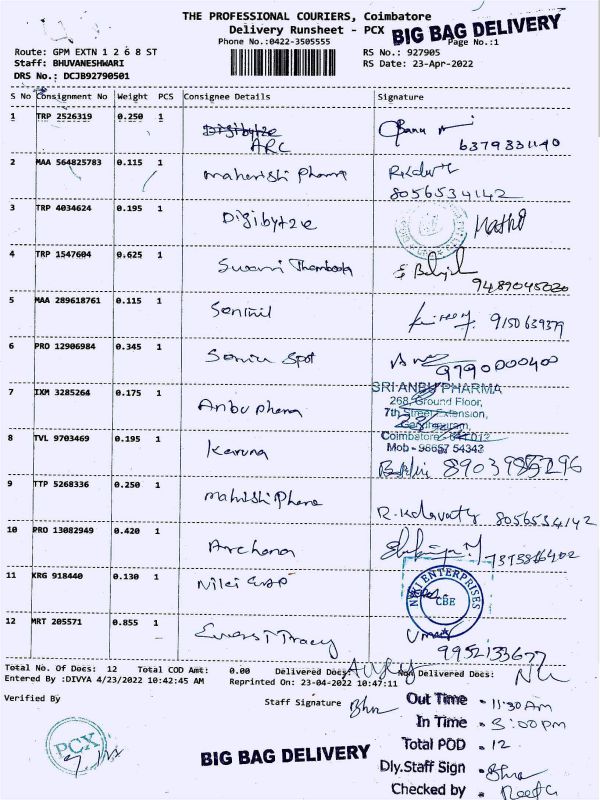 THE PROFESSIONAL COURIERS, Coimbatore
Delivery Runsheet - PCX
BIG BAG DELIVERY
Phone No.:0422-3505555
Page No.:1
Route: GPM EXTN 1 2 6 8 ST
RS No.: 927905
Staff: BHUVANESHWARI
RS Date: 23-Apr-2022
DRS No.: DCJB92790501
S No Consignment No Weight PCS Consignee Details Signature
1 TRP 2526319 0.250 1 Digibytze
ARC
6379331140
2 MAA 564825783 0.115 1 Maherishi Pharma
8056534142
3 TRP 4034624 0.195 1 Digibytze
4 TRP 1547604 0.625 1 Swami
9489045020
5 MAA 289618761 0.115 1 Senthil
9150639379
6 PRO 12906984 0.345 1 Service Spot
9790000400
SRI ANBU PHARMA
268, Ground Floor,
7 IXM 3285264 0.175 1 Anbu pharma
7th Street Extension,
Gandhipuram,
Coimbatore - 641 012
Mob - 98657 54343
8 TVL 9703469 0.195 1 Karuna
9 TTP 5268336 0.250 1 Mahrishi Phama
R. Kalavathy 8056534142
10 PRO 13082949 0.420 1 Archana
11 KRG 918440 0.130 1
NIKI ENTERPRISES
CBE
12 MRT 205571 0.855 1
9952133677
Total No. Of Docs: 12 Total COD Amt: 0.00 Delivered Docs: Non Delivered Docs: Nil
Entered By :DIVYA 4/23/2022 10:42:45 AM Reprinted On: 23-04-2022 10:47:11
Verified By
Staff Signature
Out Time - 11:30 AM
In Time - 3:00 PM
PCX
Total POD - 12
BIG BAG DELIVERY
Dly.Staff Sign -
Checked by -